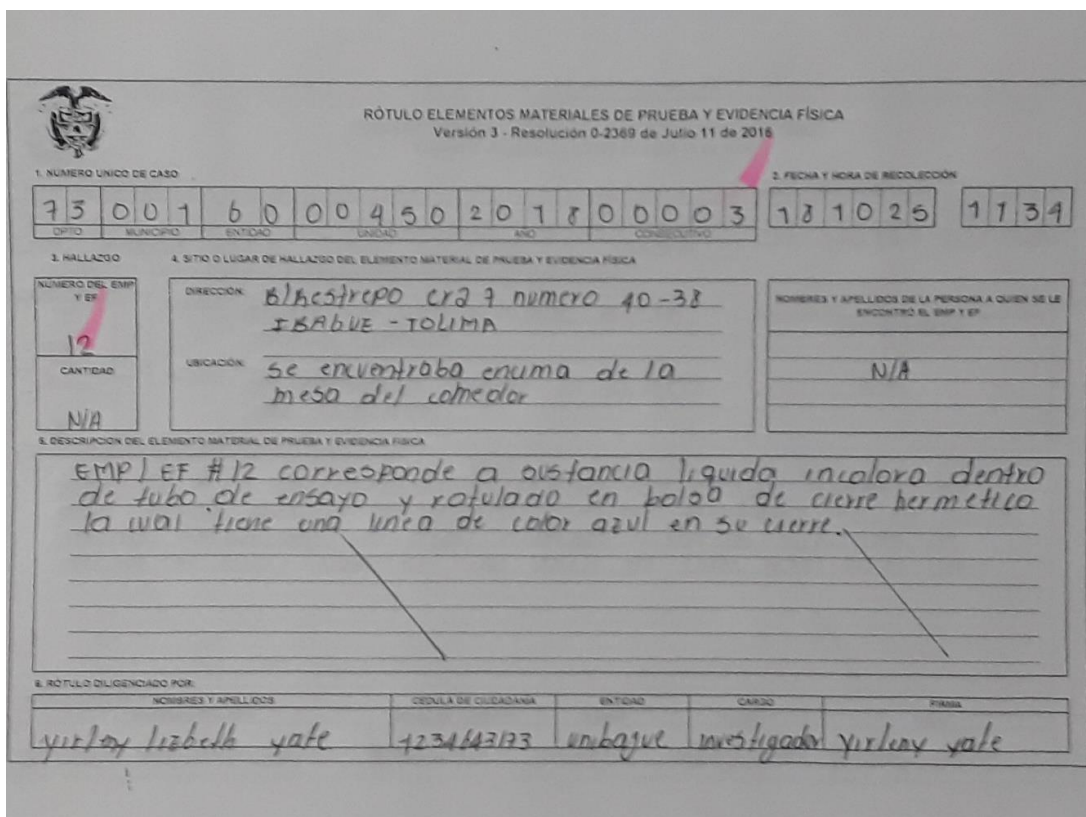 RÓTULO ELEMENTOS MATERIALES DE PRUEBA Y EVIDENCIA FÍSICA
Versión 3 - Resolución 0-2369 de Julio 11 de 2016
1. NÚMERO UNICO DE CASO
2. FECHA Y HORA DE RECOLECCIÓN
73 001 60 00450 2018 00003 181025 1134
DPTO MUNICIPIO ENTIDAD UNIDAD AÑO CONSECUTIVO
3. HALLAZGO
4. SITIO O LUGAR DE HALLAZGO DEL ELEMENTO MATERIAL DE PRUEBA Y EVIDENCIA FÍSICA
NÚMERO DEL EMP Y EF
12
CANTIDAD
N/A
DIRECCIÓN: B/Restrepo cra 7 numero 40-38
IBAGUE - TOLIMA
UBICACIÓN: se encuentraba enuma de la
mesa del comedor
NOMBRES Y APELLIDOS DE LA PERSONA A QUIEN SE LE
ENCONTRÓ EL EMP Y EF
N/A
5. DESCRIPCIÓN DEL ELEMENTO MATERIAL DE PRUEBA Y EVIDENCIA FISICA
EMP/EF #12 corresponde a sustancia liquida incolora dentro
de tubo de ensayo y rotulado en bolsa de cierre hermetico
la cual tiene una linea de color azul en su cierre.
6. RÓTULO DILIGENCIADO POR:
NOMBRES Y APELLIDOS CEDULA DE CIUDADANÍA ENTIDAD CARGO FIRMA
yirleny lizbeth yate unibague investigador yirleny yate